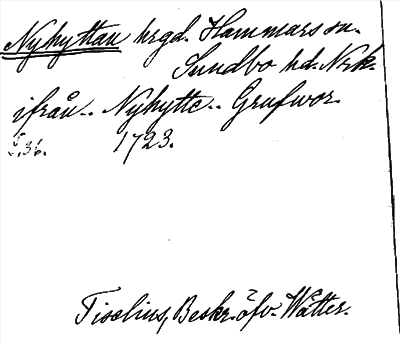 Nyhyttan hrgd. Hammars sn.
Sundbo hd. Nrk.
ifrån.. Nyhytte.. Grufwor.
s. 36. 1723.
Tiselius, Beskr. öfv. Wätter.